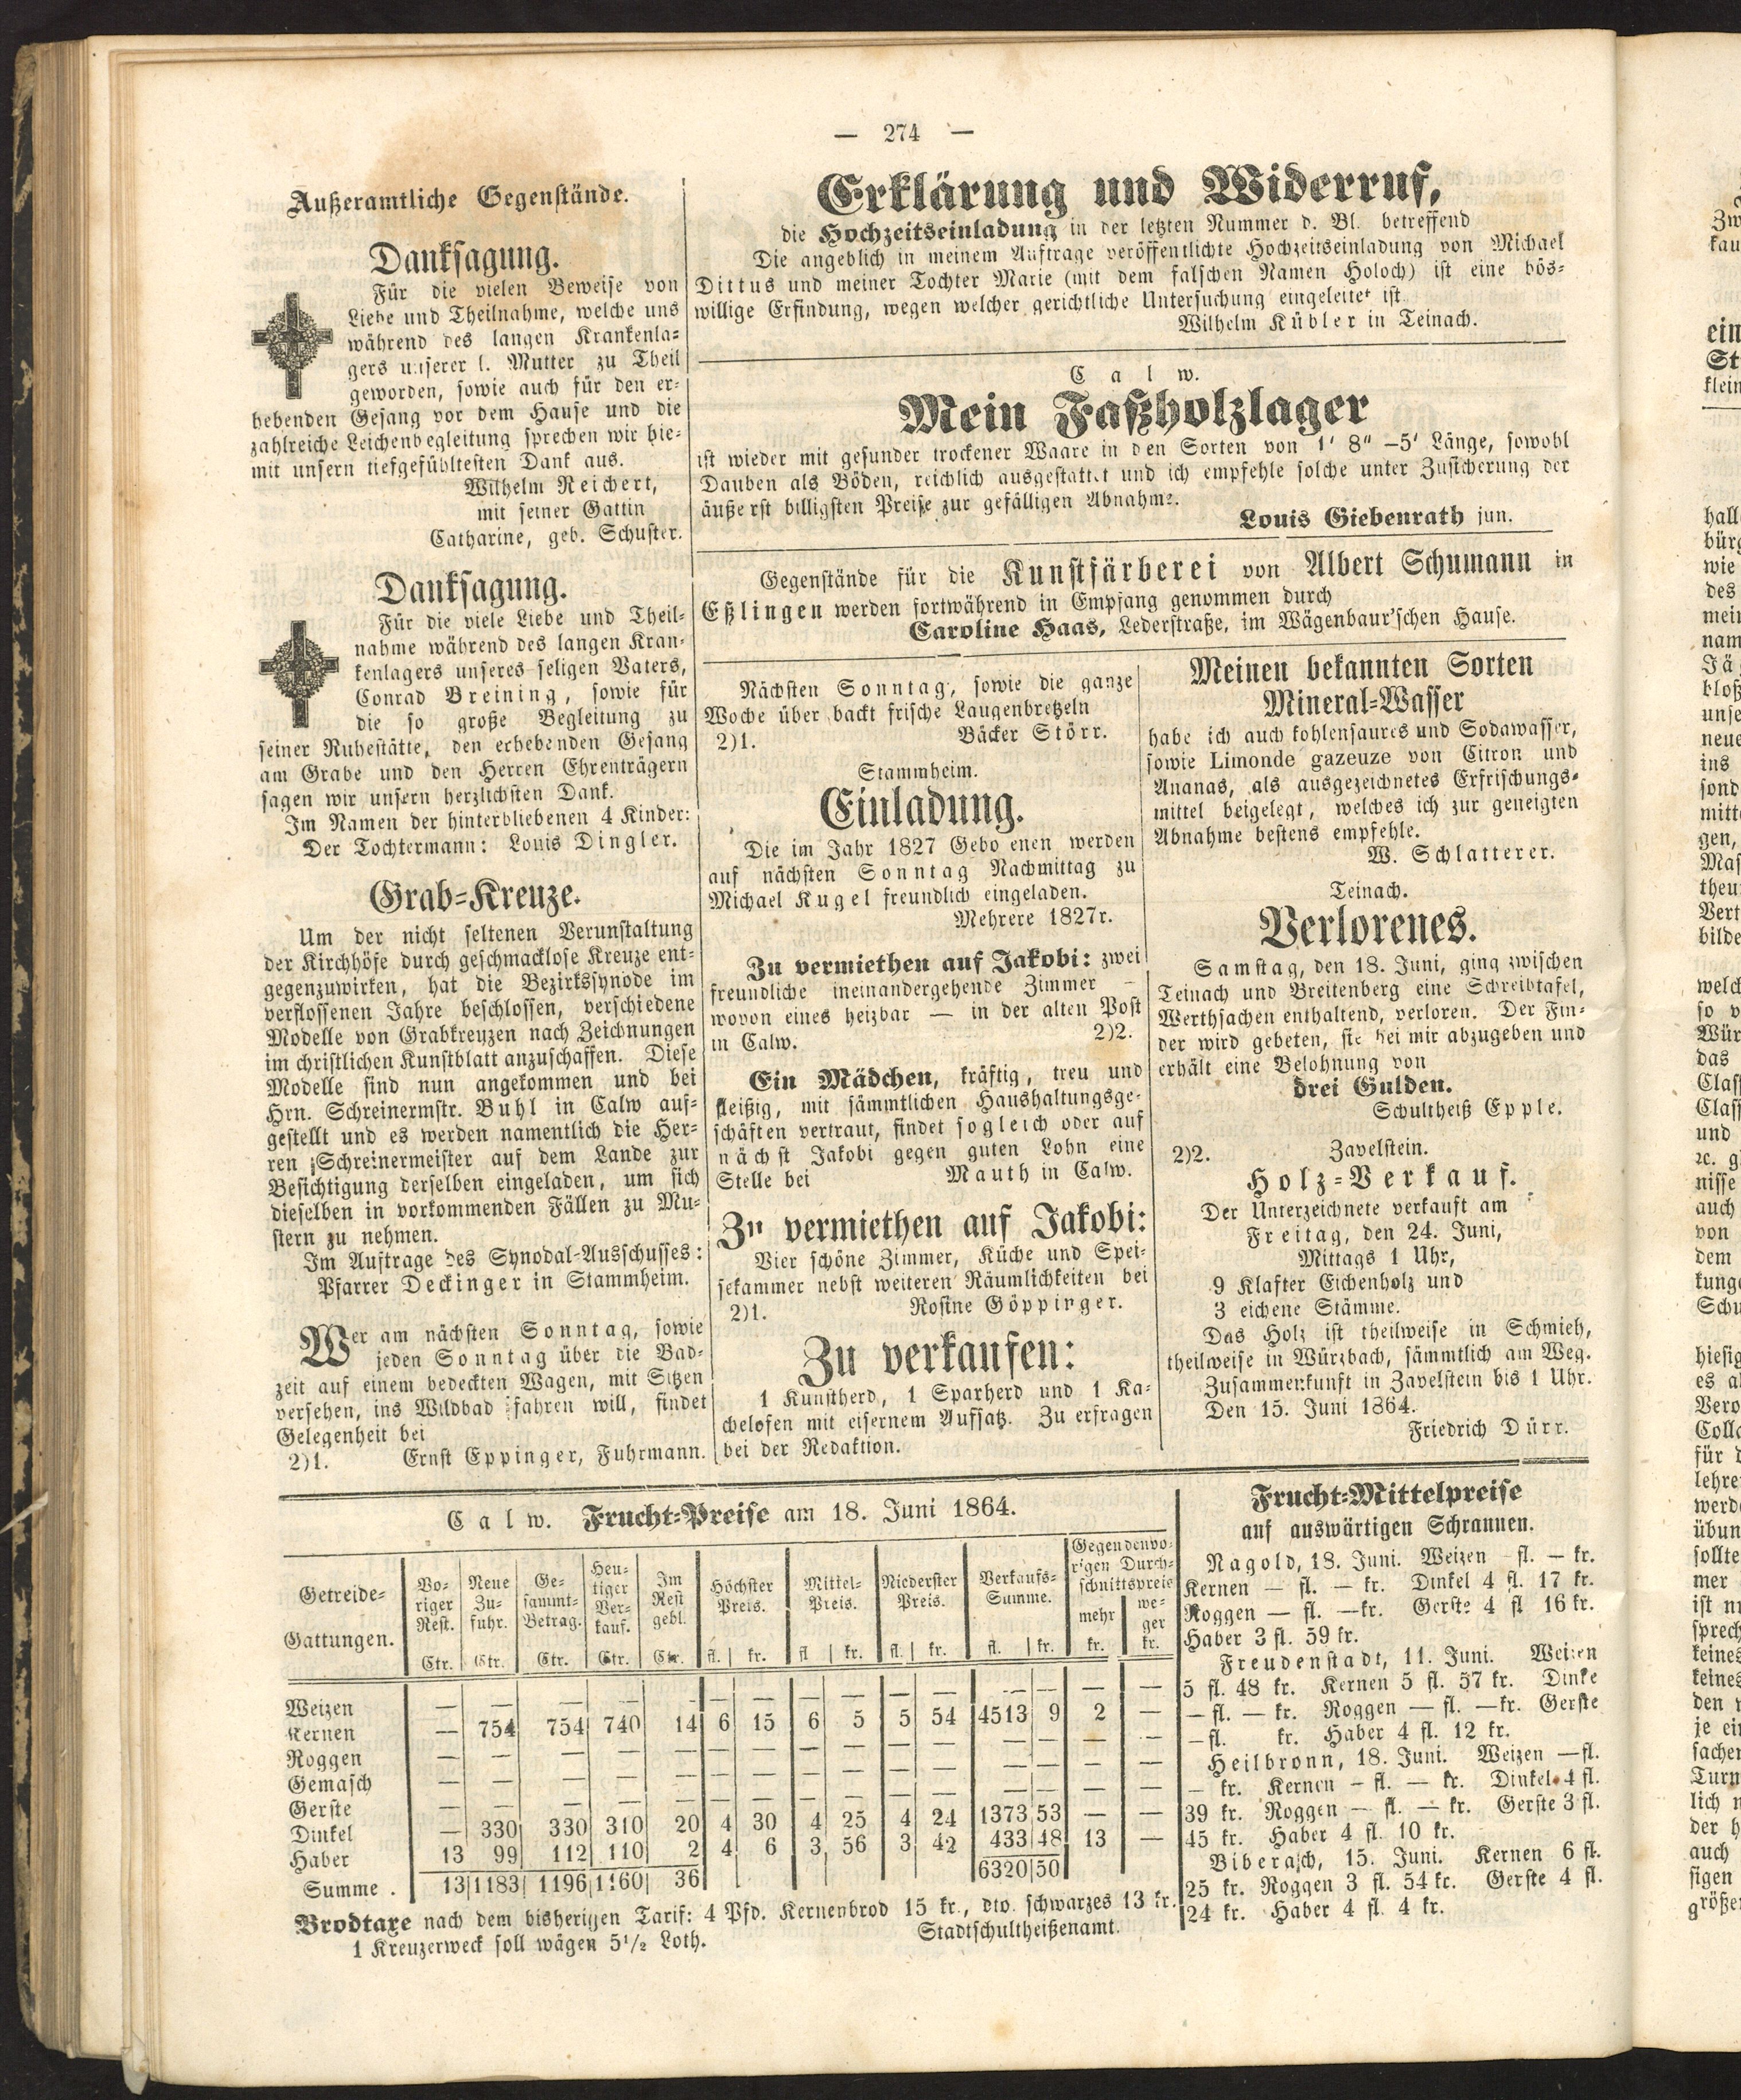 — 274 —
Außeramtliche Gegenstände.
Danksagung.
Für die vielen Beweise von
Liebe und Theilnahme, welche uns
während des langen Krankenla-
gers unserer l. Mutter zu Theil
geworden, sowie auch für den er-
hebenden Gesang vor dem Hause und die
zahlreiche Leichenbegleitung sprechen wir hie-
mit unsern tiefgefühltesten Dank aus.
Wilhelm Reichert,
mit seiner Gattin
Catharine, geb. Schuster.
Danksagung.
Für die viele Liebe und Theil-
nahme während des langen Kran-
kenlagers unseres seligen Vaters,
Conrad Breining, sowie für
die so große Begleitung zu
seiner Ruhestätte, den erhebenden Gesang
am Grabe und den Herren Ehrenträgern
sagen wir unsern herzlichsten Dank.
Im Namen der hinterbliebenen 4 Kinder:
Der Tochtermann: Louis Dingler.
Grab-Kreuze.
Um der nicht seltenen Verunstaltung
der Kirchhöfe durch geschmacklose Kreuze ent-
gegenzuwirken, hat die Bezirkssynode im
verflossenen Jahre beschlossen, verschiedene
Modelle von Grabkreuzen nach Zeichnungen
im christlichen Kunstblatt anzuschaffen. Diese
Modelle sind nun angekommen und bei
Hrn. Schreinermstr. Buhl in Calw auf-
gestellt und es werden namentlich die Her-
ren Schreinermeister auf dem Lande zur
Besichtigung derselben eingeladen, um sich
dieselben in vorkommenden Fällen zu Mu-
stern zu nehmen.
Im Auftrage des Synodal-Ausschusses:
Pfarrer Deckinger in Stammheim.
Wer am nächsten Sonntag, sowie
jeden Sonntag über die Bad-
zeit auf einem bedeckten Wagen, mit Sitzen
versehen, ins Wildbad fahren will, findet
Gelegenheit bei
2)1. Ernst Eppinger, Fuhrmann.
Erklärung und Widerruf,
die Hochzeitseinladung in der letzten Nummer d. Bl. betreffend
Die angeblich in meinem Auftrage veröffentlichte Hochzeitseinladung von Michael
Dittus und meiner Tochter Marie (mit dem falschen Namen Holoch) ist eine bös-
willige Erfindung, wegen welcher gerichtliche Untersuchung eingeleitet ist.
Wilhelm Kübler in Teinach.
Calw.
Mein Faßholzlager
ist wieder mit gesunder trockener Waare in den Sorten von 1' 8" –5' Länge, sowohl
Dauben als Böden, reichlich ausgestattet und ich empfehle solche unter Zusicherung der
äußerst billigsten Preise zur gefälligen Abnahme.
Louis Giebenrath jun.
Gegenstände für die Kunstfärberei von Albert Schumann in
Eßlingen werden fortwährend in Empfang genommen durch
Caroline Haas, Lederstraße, im Wägenbaur'schen Hause.
Nächsten Sonntag, sowie die ganze
Woche über backt frische Laugenbretzeln
2)1. Bäcker Störr.
Stammheim.
Einladung.
Die im Jahr 1827 Gebo enen werden
auf nächsten Sonntag Nachmittag zu
Michael Kugel freundlich eingeladen.
Mehrere 1827r.
Zu vermiethen auf Jakobi: zwei
freundliche ineinandergehende Zimmer –
wovon eines heizbar — in der alten Post
in Calw. 2)2.
Ein Mädchen, kräftig, treu und
fleißig, mit sämmtlichen Haushaltungsge-
schäften vertraut, findet sogleich oder auf
nächst Jakobi gegen guten Lohn eine
Stelle bei Mauth in Calw.
Zu vermiethen auf Jakobi:
Vier schöne Zimmer, Küche und Spei-
sekammer nebst weiteren Räumlichkeiten bei
2)1. Rosine Göppinger.
Zu verkaufen:
1 Kunstherd, 1 Sparherd und 1 Ka-
chelofen mit eisernem Aufsatz. Zu erfragen
bei der Redaktion.
Meinen bekannten Sorten
Mineral-Wasser
habe ich auch kohlensaures und Sodawasser,
sowie Limonde gazeuze von Citron und
Ananas, als ausgezeichnetes Erfrischungs-
mittel beigelegt, welches ich zur geneigten
Abnahme bestens empfehle.
W. Schlatterer.
Teinach.
Verlorenes.
Samstag, den 18. Juni, ging zwischen
Teinach und Breitenberg eine Schreibtafel,
Werthsachen enthaltend, verloren. Der Fin-
der wird gebeten, sie bei mir abzugeben und
erhält eine Belohnung von
drei Gulden.
Schultheiß Epple.
2)2. Zavelstein.
Holz-Verkauf.
Der Unterzeichnete verkauft am
Freitag, den 24. Juni,
Mittags 1 Uhr,
9 Klafter Eichenholz und
3 eichene Stämme.
Das Holz ist theilweise in Schmieh,
theilweise in Würzbach, sämmtlich am Weg.
Zusammenkunft in Zavelstein bis 1 Uhr.
Den 15. Juni 1864.
Friedrich Dürr.
Calw. Frucht-Preise am 18. Juni 1864.
Getreide-Gattungen. | Voriger Rest. Ctr. | Neue Zufuhr. Ctr. | Gesammt-Betrag. Ctr. | Heutiger Verkauf. Ctr. | Im Rest gebl. Ctr. | Höchster Preis. fl. kr. | Mittel-Preis. fl kr. | Niederster Preis. fl. kr. | Verkaufs-Summe. fl. kr. | Gegen den vorigen Durchschnittspreis mehr kr. | weger kr.
Weizen — — — — — — — — — — — — — — —
Kernen — 754 754 740 14 6 15 6 5 5 54 4513 9 2 —
Roggen — — — — — — — — — — — — — — —
Gemasch — — — — — — — — — — — — — — —
Gerste — — — — — — — — — — — — — — —
Dinkel — 330 330 310 20 4 30 4 25 4 24 1373 53 — —
Haber 13 99 112 110 2 4 6 3 56 3 42 433 48 13 —
Summe . 13 1183 1196 1160 36 6320 50
Brodtaxe nach dem bisherigen Tarif: 4 Pfd. Kernenbrod 15 kr., dto. schwarzes 13 kr.
1 Kreuzerweck soll wägen 5½ Loth. Stadtschultheißenamt.
Frucht-Mittelpreise
auf auswärtigen Schrannen.
Nagold, 18. Juni. Weizen – fl. – kr.
Kernen — fl. — kr. Dinkel 4 fl. 17 kr.
Roggen — fl. —kr. Gerste 4 fl 16 kr.
Haber 3 fl. 59 kr.
Freudenstadt, 11. Juni. Weizen
5 fl. 48 kr. Kernen 5 fl. 57 kr. Dinke
— fl. — kr. Roggen — fl. —kr. Gerste
—fl. kr. Haber 4 fl. 12 kr.
Heilbronn, 18. Juni. Weizen —fl.
— kr. Kernen – fl. — kr. Dinkel 4 fl.
39 kr. Roggen — fl. — kr. Gerste 3 fl.
45 kr. Haber 4 fl. 10 kr.
Biberach, 15. Juni. Kernen 6 fl.
25 kr. Roggen 3 fl. 54 kr. Gerste 4 fl.
24 kr. Haber 4 fl. 4 kr.